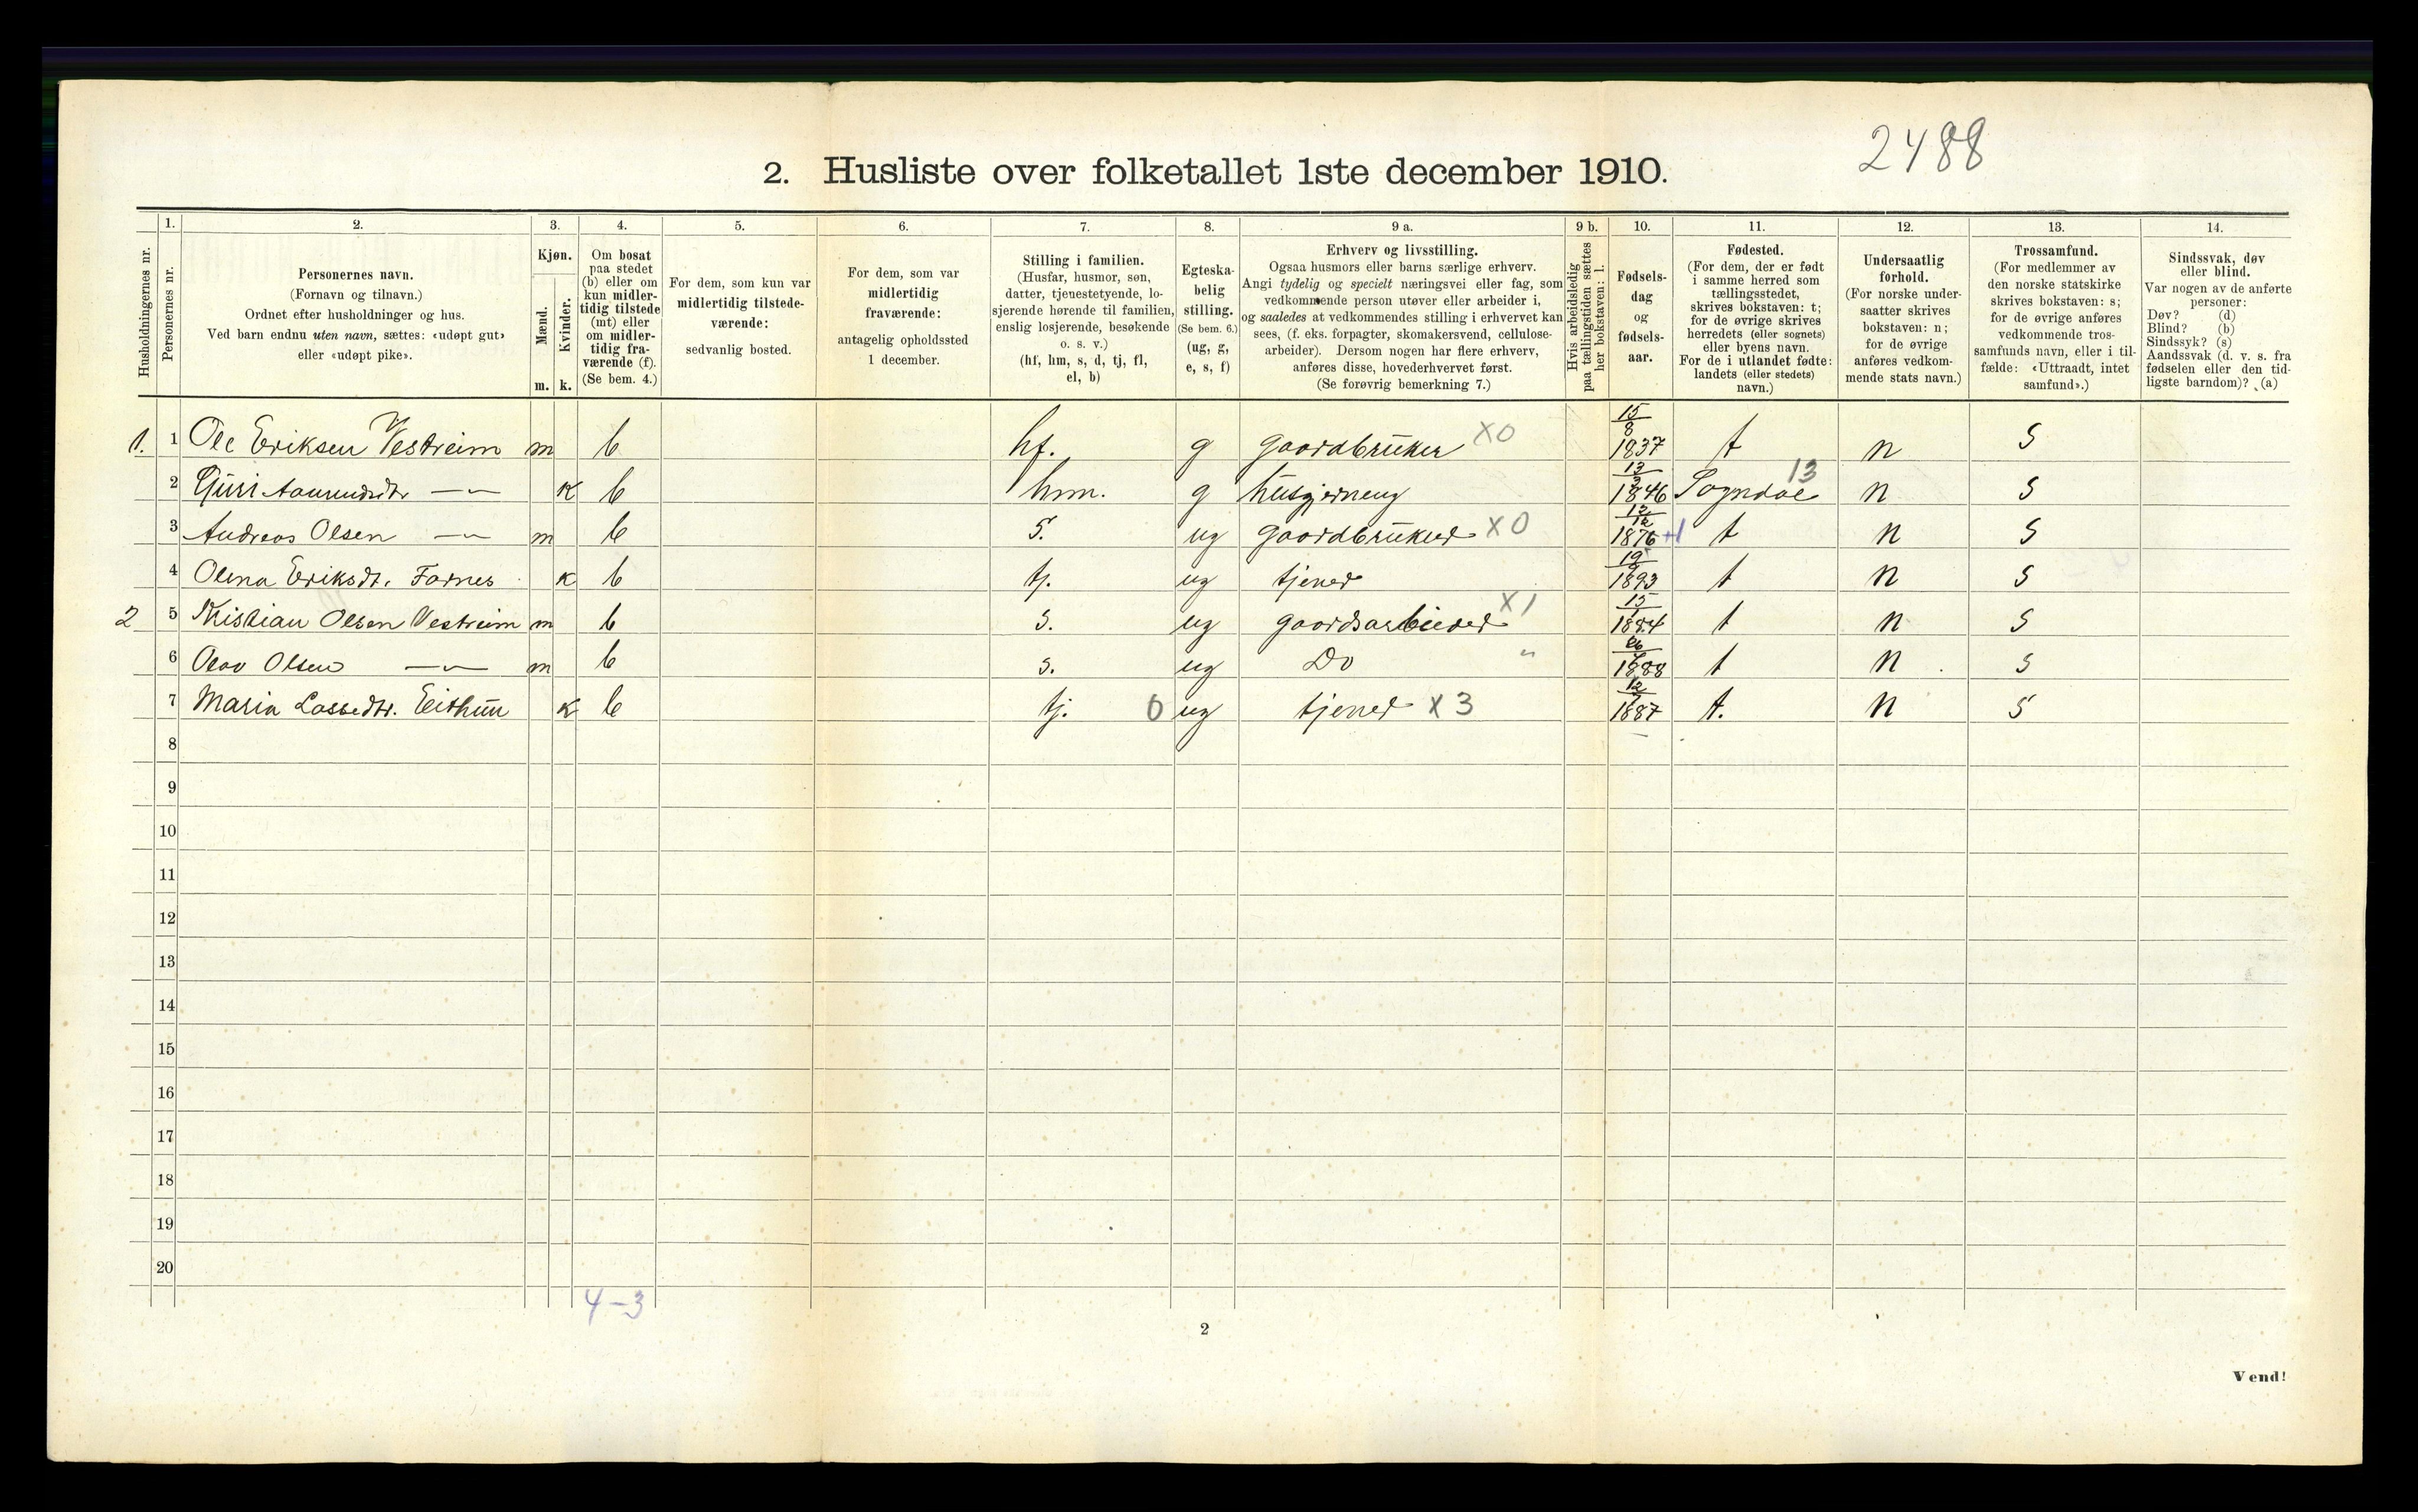 2488
2. Husliste over folketallet 1ste december 1910.
Husholdningernes nr.
1.
Personernes nr.
2.
Personernes navn.
(Fornavn og tilnavn.)
Ordnet efter husholdninger og hus.
Ved barn endnu uten navn, sættes: «udøpt gut»
eller «udøpt pike».
3.
Kjøn.
Mænd.
Kvinder.
m. k.
4.
Om bosat
paa stedet
(b) eller om
kun midler-
tidig tilstede
(mt) eller
om midler-
tidig fra-
værende (f).
(Se bem. 4.)
5.
For dem, som kun var
midlertidig tilstede-
værende:
sedvanlig bosted.
6.
For dem, som var
midlertidig
fraværende:
antagelig opholdssted
1 december.
7.
Stilling i familien.
(Husfar, husmor, søn,
datter, tjenestetyende, lo-
sjerende hørende til familien,
enslig losjerende, besøkende
o. s. v.)
(hf, hm, s, d, tj, fl,
el, b)
8.
Egteska-
belig
stilling.
(Se bem. 6.)
(ug, g,
e, s, f)
9 a.
Erhverv og livsstilling.
Ogsaa husmors eller barns særlige erhverv.
Angi tydelig og specielt næringsvei eller fag, som
vedkommende person utøver eller arbeider i,
og saaledes at vedkommendes stilling i erhvervet kan
sees, (f. eks. forpagter, skomakersvend, cellulose-
arbeider). Dersom nogen har flere erhverv,
anføres disse, hovederhvervet først.
(Se forøvrig bemerkning 7.)
9 b.
Hvis arbeidsledig
paa tællingstiden sættes
her bokstaven: l.
10.
Fødsels-
dag
og
fødsels-
aar.
11.
Fødested.
(For dem, der er født
i samme herred som
tællingsstedet,
skrives bokstaven: t;
for de øvrige skrives
herredets (eller sognets)
eller byens navn.
For de i utlandet fødte:
landets (eller stedets)
navn.)
12.
Undersaatlig
forhold.
(For norske under-
saatter skrives
bokstaven: n;
for de øvrige
anføres vedkom-
mende stats navn.)
13.
Trossamfund.
(For medlemmer av
den norske statskirke
skrives bokstaven: s;
for de øvrige anføres
vedkommende tros-
samfunds navn, eller i til-
fælde: «Uttraadt, intet
samfund».)
14.
Sindssvak, døv
eller blind.
Var nogen av de anførte
personer:
Døv? (d)
Blind? (b)
Sindssyk? (s)
Aandssvak (d. v. s. fra
fødselen eller den tid-
ligste barndom)? (a)
1. 1 Ole Eriksen Vestreim m b hf. g gaardbruker X0 15/8 1837 t n s
2 Guri Aamundsdtr —〃— k b hm. g husgjerning 13/3 1846 Sogndal 13 n s
3 Andreas Olsen —〃— m b s. ug gaardbruker X0 12/12 1876 +1 t n s
4 Olina Eriksdt. Farnes k b tj. ug tjener 1893 t n s
2 5 Kristian Olsen Vestreim m b s. ug gaardsarbeider X1 15/1 1884 t n s
6 Olav Olsen —〃— m b s. ug Do 〃 1888 t n s
7 Maria Lassedtr. Eithun k b tj. 0 ug tjener X3 12/7 1887 t. n s
8
9
10
11
12
13
14
15
16
17
18
19
20
4-3
2
Vend!